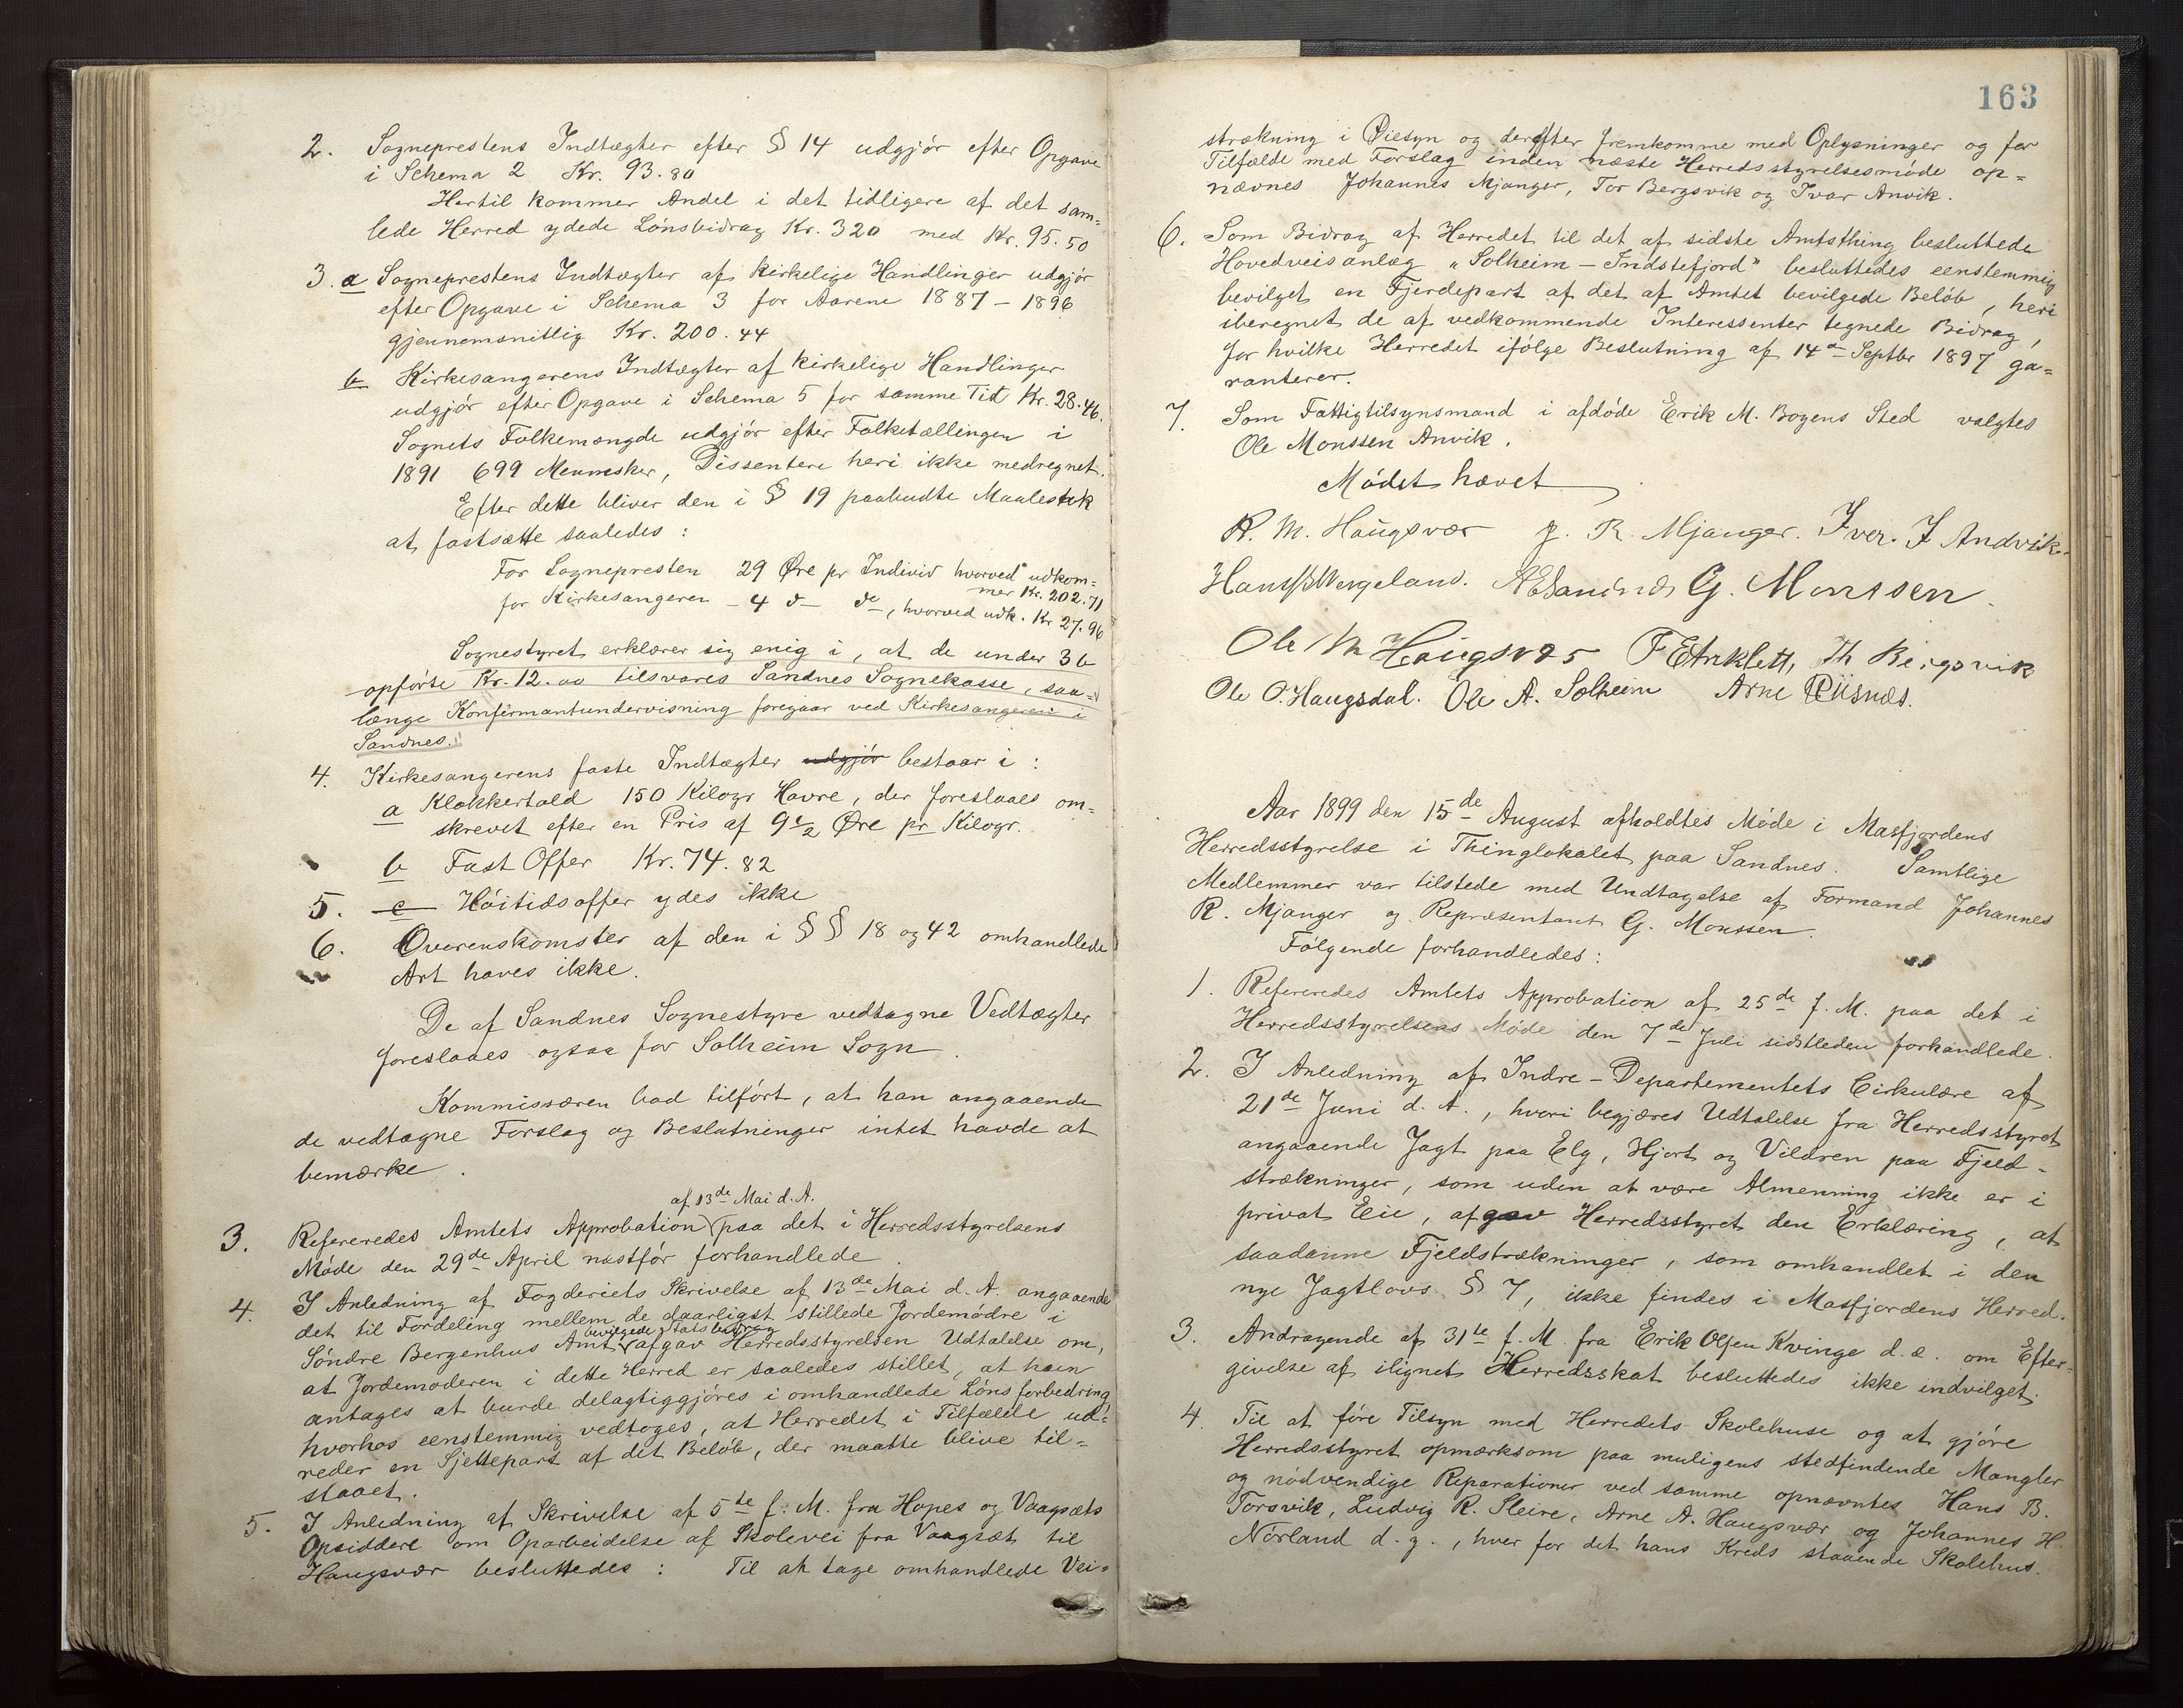 2. Sogneprestens Indtægter efter § 14 udgjør efter Opgave
i Schema 2 Kr. 93.80
Hertil kommer Andel i det tidligere af det sam=
lede Herred ydede Lønsbidrag Kr. 320 med Kr. 95.50
3. a Sogneprestens Indtægter af kirkelige Handlinger udgjør
efter Opgave i Schema 3 for Aarene 1887 - 1896
gjennemsnitlig Kr. 200.44
b Kirkesangerens Indtægter af kirkelige Handlinger
udgjør efter Opgave i Schema 5 for samme Tid Kr. 28.46.
Sognets Folkemængde udgjør efter Folketællingen i
1891 699 Mennesker, Dissentere heri ikke medregnet.
Efter dette bliver den i § 19 paabudte Maalestok
at fastsætte saaledes:
For Sognepresten 29 Øre pr Individ hvorved udkom=
mer Kr. 202.71
for Kirkesangeren - 4 d- do, hvorved udk. Kr 27.96
Sognestyret erklærer sig enig i, at de under 3 b
opførte Kr. 12.00 tilsvares Sandnes Sognekasse, saa=
længe Konfirmantundervisning foregaar ved Kirkesangeren i
Sandnes.
4. Kirkesangerens faste Indtægter udgjør bestaar i:
a Klokkertold 150 Kilogr Havre, der foreslaaes om=
skrevet efter en Pris af 9 1/2 Øre pr Kilogr.
b Fast Offer Kr. 74.82
5. c Høitidsoffer ydes ikke
6. Overenskomster af den i §§ 18 og 42 omhandlede
Art haves ikke.
De af Sandnes Sognestyre vedtagne Vedtægter
foreslaaes ogsaa for Solheim Sogn.
Kommissæren bad tilført, at han angaaende
de vedtagne Forslag og Beslutninger intet havde at
bemærke.
af 13de Mai d. A.
3. Refereredes Amtets Approbation paa det i Herredsstyrelsens
Møde den 29de April næstfør forhandlede
4. I Anledning af Fogderiets Skrivelse af 13de Mai d. A. angaaende
det til Fordeling mellem de daarligst stillede Jordemødre i
bevilgede Statsbidrag
Søndre Bergenhus Amt afgav Herredsstyrelsen Udtalelse om,
at Jordemoderen i dette Herred er saaledes stillet, at hun
antages at burde delagtiggjøres i omhandlede Lønsforbedring
hvorhos eenstemmig vedtoges, at Herredet i Tilfælde ud=
reder en Sjettepart af det Beløb, der maatte blive til=
staaet.
5. I Anledning af Skrivelse af 5te f. M. fra Hopes og Vaagsæts
Opsiddere om Oparbeidelse af Skolevei fra Vaagsæt til
Haugsvær besluttedes: Til at tage omhandlede Vei=
163
strækning i Øiesyn og derefter fremkomme med Oplysninger og for
Tilfælde med Forslag inden næste Herredsstyrelsesmøde op=
nævnes Johannes Mjanger, Tor Bergsvik og Ivar Anvik.
6. Som Bidrag af Herredet til det af sidste Amtsthing besluttede
Hovedveisanlæg "Solheim - Indstefjord" besluttedes eenstemmig
bevilget en Fjerdepart af det af Amtet bevilgede Beløb, heri
iberegnet de af vedkommende Interessenter tegnede Bidrag,
for hvilke Herredet ifølge Beslutning af 14de Septbr 1897 ga=
ranterer.
7. Som Fattigtilsynsmand i afdøde Erik M. Bogens Sted valgtes
Ole Monssen Anvik.
Mødet hævet
R. M. Haugsvær J. R. Mjanger. Iver. I Andvik.
Hans Wergeland. G. Monssen.
Ole M Haugsvær Th Bergsvik
Ole O. Haugsdal. Ole A. Solheim Arne Riisnæs.
Aar 1899 den 15de August afholdtes Møde i Masfjordens
Herredsstyrelse i Thinglokalet paa Sandnes. Samtlige
Medlemmer var tilstede med Undtagelse af Formand Johannes
R. Mjanger og Repræsentant G. Monssen.
Følgende forhandledes:
1. Refereredes Amtets Approbation af 25de f. M. paa det i
Herredsstyrelsens Møde den 7de Juli sidstleden forhandlede.
2. I Anledning af Indre-Departementets Cirkulære af
21de Juni d. A., hvori begjæres Udtalelse fra Herredsstyret
angaaende Jagt paa Elg, Hjort og Vildren paa Fjeld-
strækninger, som uden at være Almenning ikke er i
privat Eie, afgav Herredsstyret den Erklæring, at
saadanne Fjeldstrækninger, som omhandlet i den
nye Jagtlovs § 7, ikke findes i Masfjordens Herred.
3. Andragende af 31te f. M. fra Erik Olsen Kvinge d. æ. om Efter-
givelse af ilignet Herredsskat besluttedes ikke indvilget.
4 Til at føre Tilsyn med Herredets Skolehuse og at gjøre
Herredsstyret opmærksom paa muligens stedfindende Mangler
og nødvendige Reparationer ved samme opnævntes Hans B.
Torsvik, Ludvig R. Sleire, Arne A. Haugsvær og Johannes H.
Nørland d. y., hver for det hans Kreds staaende Skolehus.